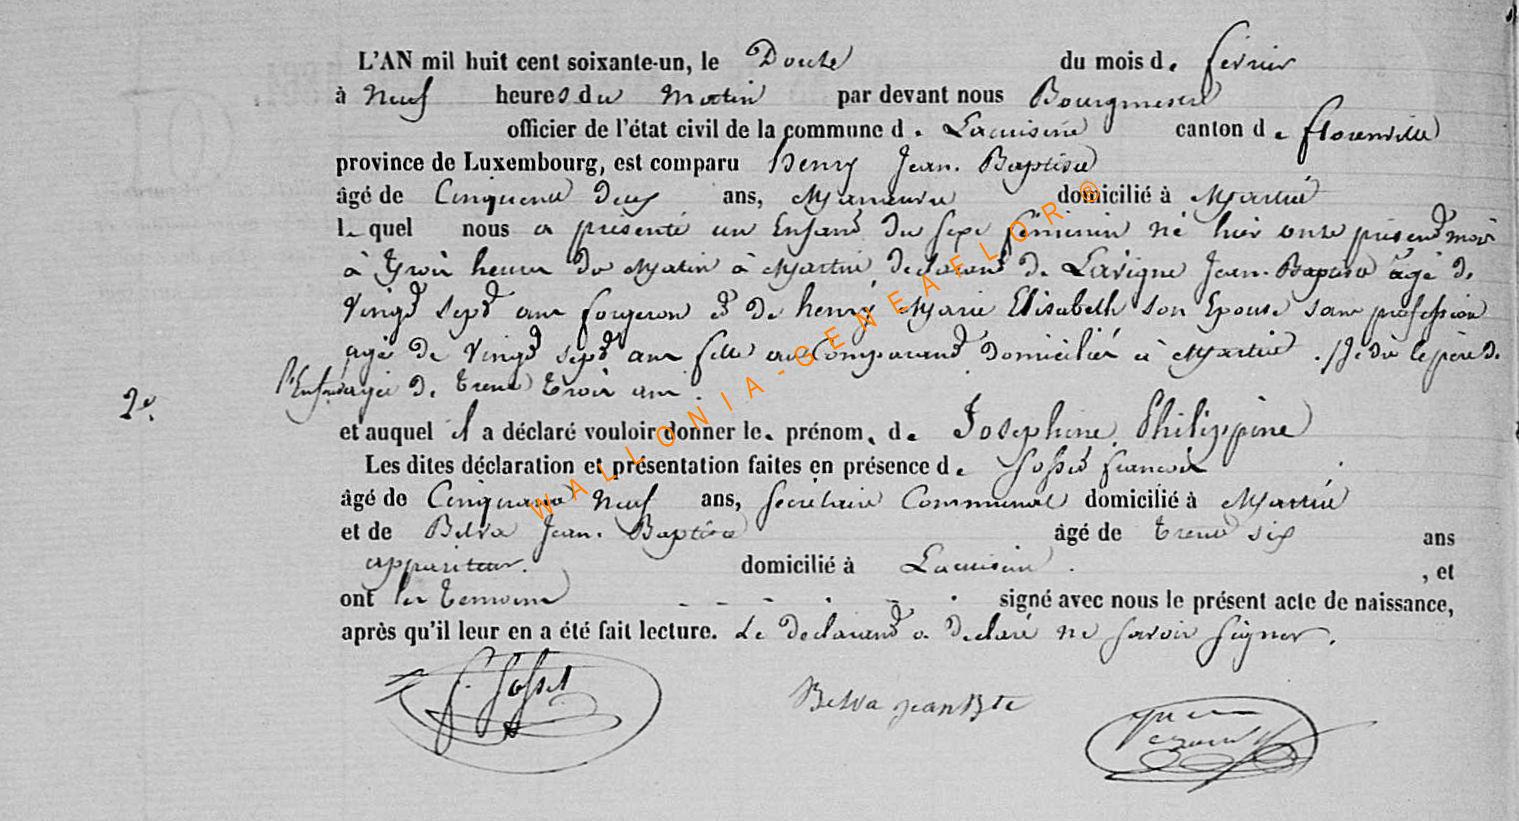 L'AN mil huit cent soixante-un, le Douze du mois de février
à Neuf heures du Matin par devant nous Bourgmestre
officier de l'état civil de la commune de Lacuisine canton de florenville
province de Luxembourg, est comparu henry Jean-Baptiste
âgé de Cinquante deux ans, Manœuvre domicilié à Martué
le quel nous a présenté un Enfant du sexe féminin né hier onze présent mois
à Trois heures du Matin à Martué, déclarant de Lavigne Jean-Baptiste âgé de
vingt sept ans forgeron et de henry Marie Elisabeth son Epouse sans profession
âgée de vingt sept ans fille au Comparant domiciliés à Martué. Je dis le père de
l'Enfant âgé de trente trois ans.
2e.
et auquel il a déclaré vouloir donner les prénoms de Joséphine Philippine
Les dites déclaration et présentation faites en présence de Josset francois
âgé de Cinquante Neuf ans, secrétaire Communal domicilié à Martué
et de Belva Jean-Baptiste âgé de trente six ans
appariteur. domicilié à Lacuisine. , et
ont les témoins signé avec nous le présent acte de naissance,
après qu'il leur en a été fait lecture. Le déclarant a déclaré ne savoir signer.
f. Josset Belva jean Bte
WALLONIA-GENEAFLOR®